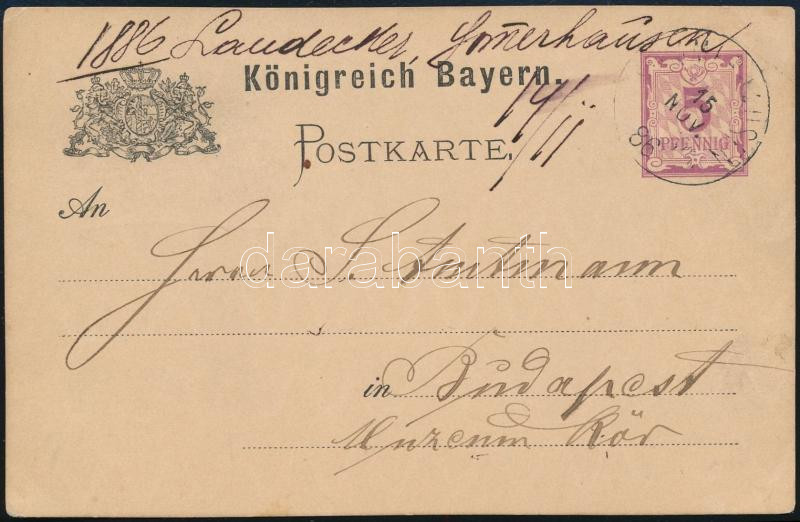 1886 Landecker, Gomerhausen
Königreich Bayern.
14/11
POSTKARTE.
5
PFENNIG
15
NOV.
86
An
Herrn S.
darabanth
in Budapest
Muzeum Kör